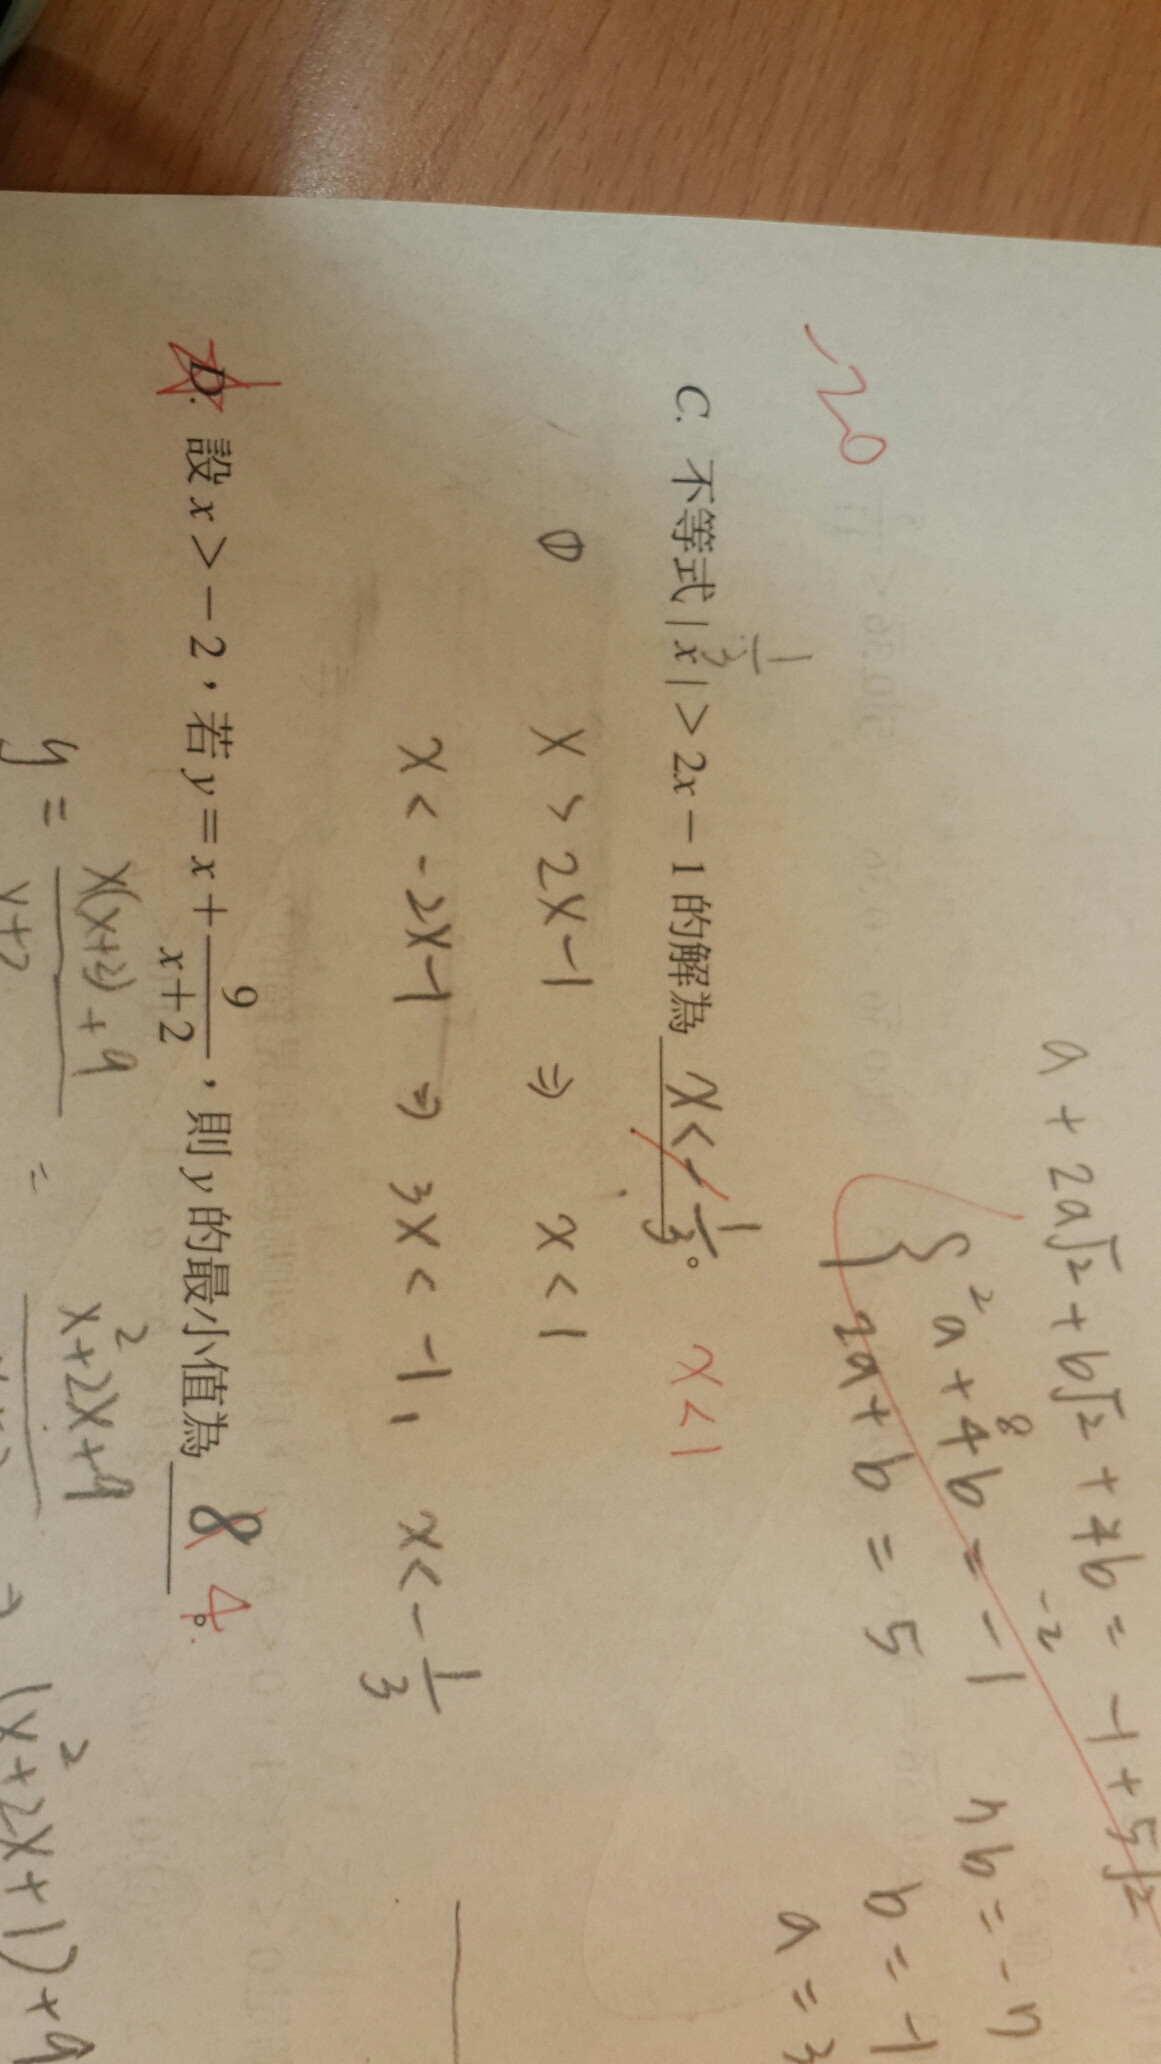 a + 2a√2 + b√2 + 4b = -1 + 5√2
{ 2a + 8 4b = -1 -2
2a + b = 5
b = -1
a = 3
-20
C. 不等式 | x | > 2x - 1 的解為 x < -1/3 。 x < 1
1/3
① x > 2x - 1 ⇒ x < 1
x < -2x - 1 ⇒ 3x < -1, x < -1/3
D. 設 x > -2,若 y = x + 9/(x+2),則 y 的最小值為 8 4。
y = (x(x+2) + 9)/(x+2) = x²+2x+9
(x²+2x+1)+9